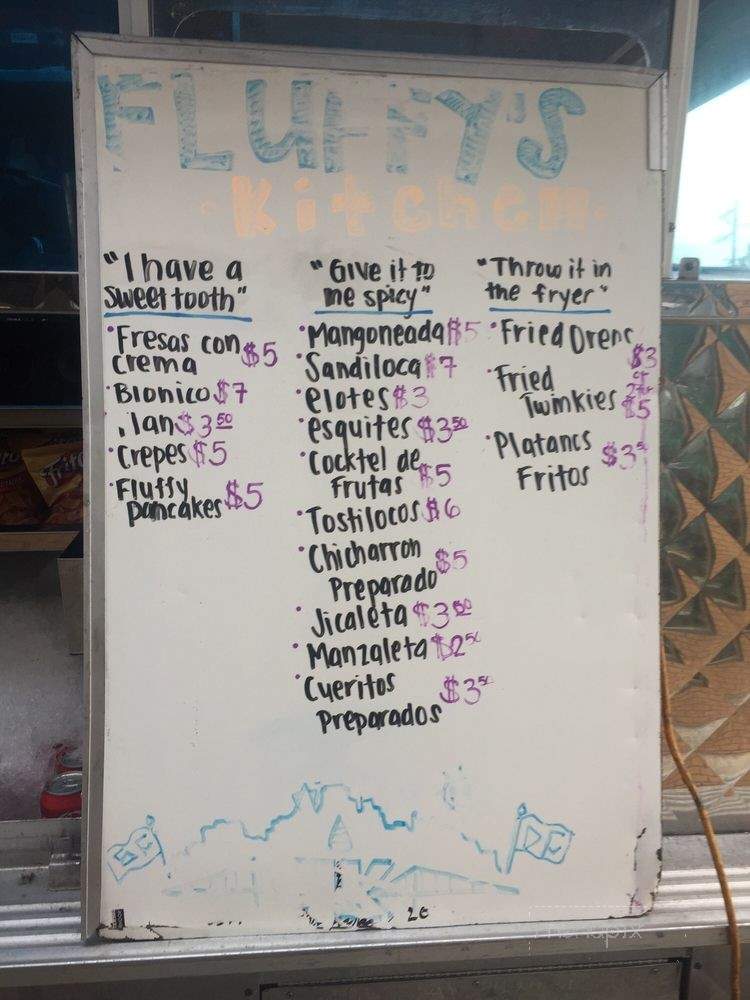 FLUFFY'S
Kitchen
"I have a
sweet tooth"
Fresas con
crema $5
Bionico $7
lan $3.50
Crepes $5
Fluffy
pancakes $5
"Give it to
me spicy"
Mangoneada $5
Sandiloca $7
elotes $3
esquites $3.50
Cocktel de
Frutas $5
Tostilocos $6
Chicharron
Preparado $5
Jicaleta $3.50
Manzaleta $2.50
Cueritos
Preparados $3.50
"Throw it in
the fryer"
Fried Oreos
$3
Fried
Twinkies $5
Platanos
Fritos $3.5
Frit
DE